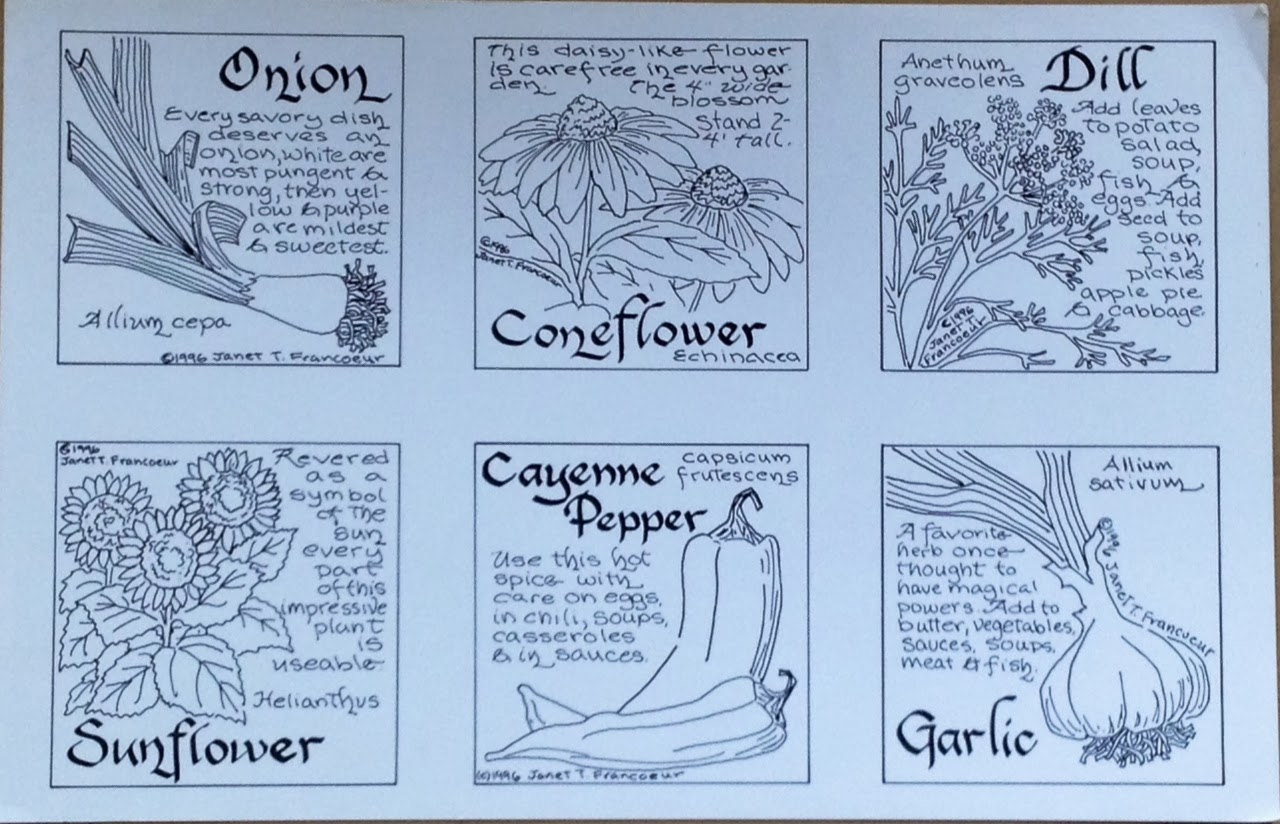 Onion
Every savory dish
deserves an
onion, white are
most pungent &
strong, then yel-
low & purple
are mildest
& sweetest.
Allium cepa
©1996 Janet T. Francoeur
This daisy-like flower
is carefree in every gar-
den. The 4" wide
blossom
stand 2-
4' tall.
©1996
Janet T. Francoeur
Coneflower
Echinacea
Anethum
graveolens
Dill
Add leaves
to potato
salad,
soup,
fish &
eggs. Add
seed to
soup,
fish,
pickles
apple pie
& cabbage.
©1996
Janet T.
Francoeur
©1996
Janet T. Francoeur
Revered
as a
symbol
of the
sun
every
part
of this
impressive
plant
is
useable.
Helianthus
Sunflower
Cayenne
Pepper
capsicum
frutescens
Use this hot
spice with
care on eggs,
in chili, soups,
casseroles
& in sauces.
(c)1996 Janet T. Francoeur
Allium
sativum
A favorite
herb once
thought to
have magical
powers. Add to
butter, vegetables,
sauces, soups,
meat & fish.
©1996 Janet T. Francoeur
Garlic